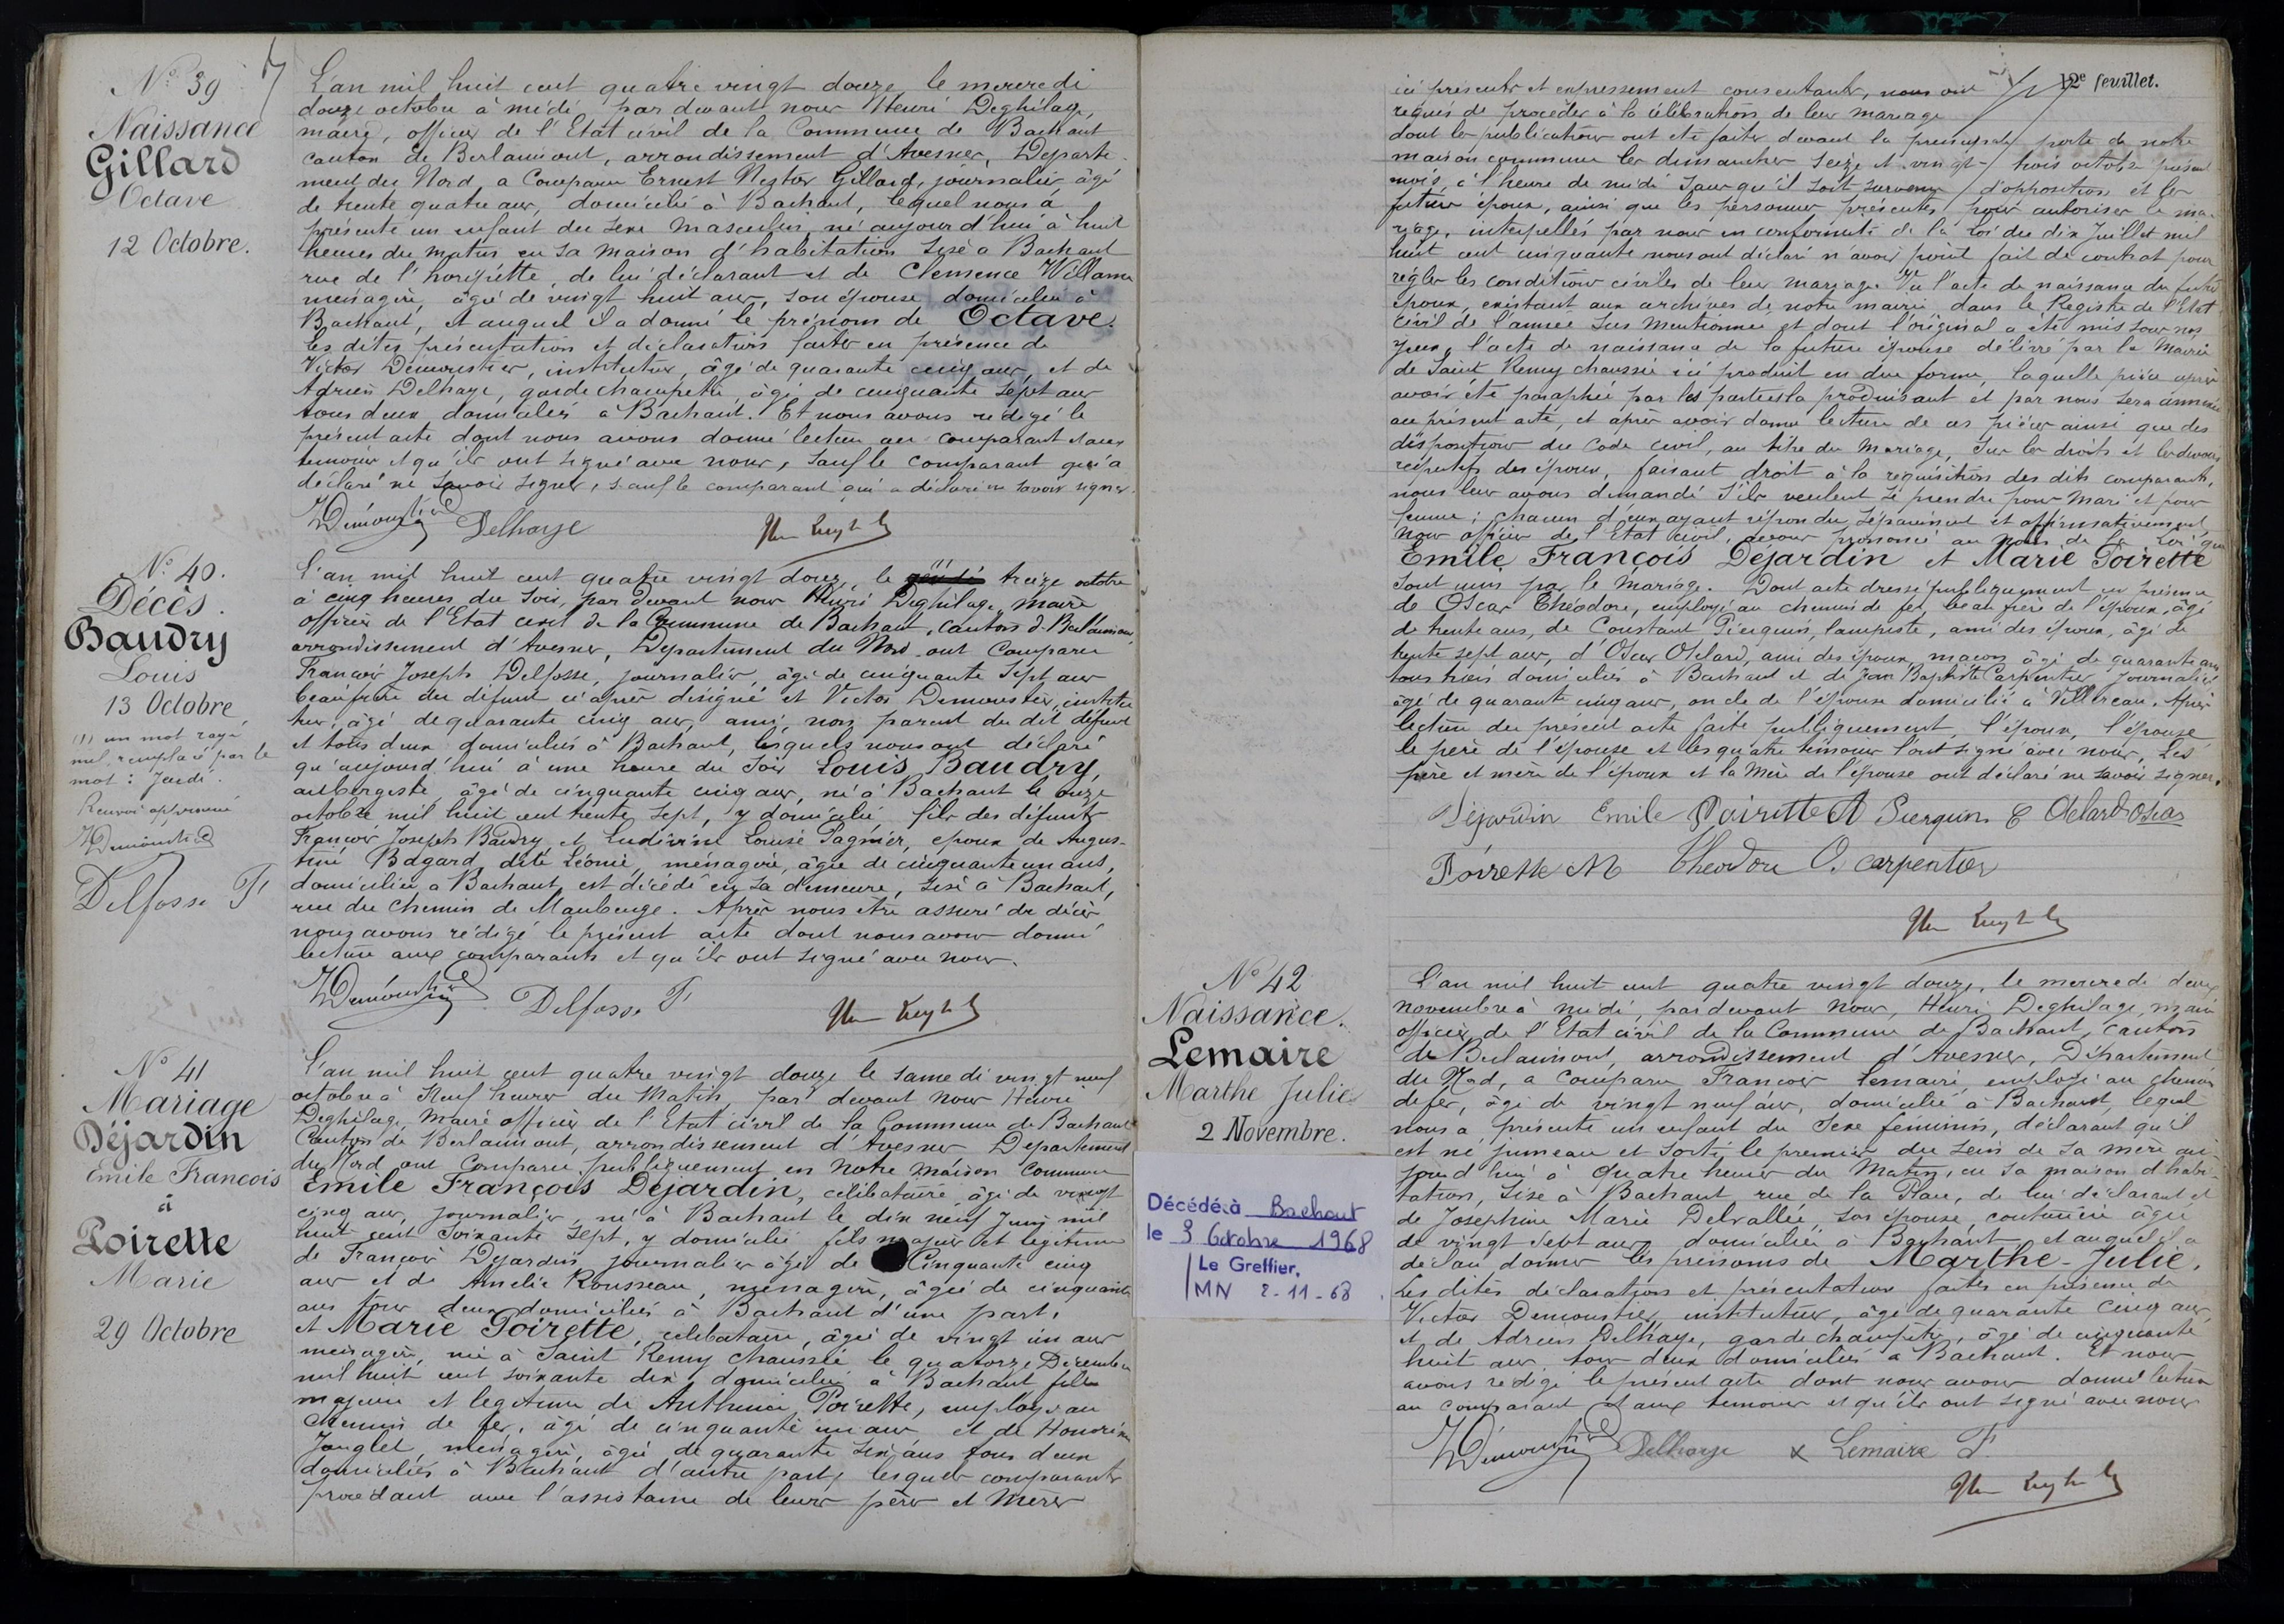 N° 39
Naissance
Gillard
Octave
12 Octobre.
L'an mil huit cent quatre vingt douze le mercredi
douze octobre à midi par devant nous Henri Deghilage,
maire, officier de l'Etat civil de la Commune de Bachant
canton de Berlaimont, arrondissement d'Avesnes, Departe-
ment du Nord, a Comparu Ernest Nestor Gillard, journalier, âgé
de trente quatre ans, domicilié à Bachant, lequel nous a
présenté un enfant du sexe masculin, né aujourd'hui à huit
heures du matin en sa maison d'habitation sise à Bachant
rue de l', de lui déclarant et de Clémence Willame
ménagère, âgée de vingt huit ans, son épouse, domiciliée à
Bachant, et auquel il a donné le prénom de Octave.
les dites présentation et déclaration faites en présence de
Victor Demoustier, instituteur, âgé de quarante cinq ans, et de
Adrien Delhaye, garde champêtre, âgé de cinquante sept ans
tous deux domiciliés à Bachant. Et nous avons redigé le
présent acte dont nous avons donné lecture au comparant et aux
temoins et qu'ils ont signé avec nous, sauf le comparant qui a
déclaré ne savoir signer, sauf le comparant qui a déclaré ne savoir signer.
VDémoustier Delhaye
N° 40.
Décès.
Baudry
Louis
13 Octobre
(1) un mot rayé
nul, remplacé par le
mot : Jeudi.
Renvoi approuvé
VDemoustier
Delfosse F
L'an mil huit cent quatre vingt douze, le treize octobre
à cinq heures du soir, par devant nous Henri Deghilage, maire
officier de l'Etat civil de la Commune de Bachant, canton de Berlaimont
arrondissement d'Avesnes, Département du Nord ont comparu
François Joseph Delfosse, journalier, âgé de cinquante sept ans
beau frère du défunt ci après désigné et Victor Demoustier, institu
teur, âgé de quarante cinq ans, ami, non parent du dit défunt
et tous deux domiciliés à Bachant, lesquels nous ont déclaré
qu'aujourd'hui à une heure du soir Louis Baudry,
aubergiste, âgé de cinquante cinq ans, né à Bachant le onze
octobre mil huit cent trente sept, y domicilié fils des défunts
François Joseph Baudry et Ludivine Louise Pagnier, époux de Augus-
tine Bagard, dite Léonie, ménagère, âgée de cinquante un ans,
domiciliée à Bachant, est décédé en sa demeure, sise à Bachant,
rue du Chemin de Maubeuge. Après nous être assuré du décès
nous avons rédigé le présent acte dont nous avons donné
lecture aux comparants et qu'ils ont signé avec nous.
VDémoustier Delfosse F
N° 41
Mariage
Déjardin
Emile François
à
Poirette
Marie
29 Octobre
L'an mil huit cent quatre vingt douze le samedi vingt neuf
octobre à Neuf heures du Matin, par devant Nous Henri
Deghilage, Maire officier de l'Etat civil de la Commune de Bachant
Canton de Berlaimont, arrondissement d'Avesnes Departement
du Nord ont Comparu publiquement en Notre maison commune
Emile François Dejardin, célibataire, âgé de vingt
cinq ans, journalier, né à Bachant le dix neuf Juin mil
huit cent soixante sept, y domicilié fils majeur et legitime
de François Dejardin journalier âgé de Cinquante cinq
ans et de Amelie Rousseau, ménagère, âgée de cinquante
ans tous deux domiciliés à Bachant d'une part.
et Marie Poirette, celibataire, âgée de vingt un ans
ménagère, née à Saint Remy chaussée le quatorze Décembre
mil huit cent soixante dix, domiciliée à Bachant fille
majeure et legitime de Anthime Poirette, employé au
chemin de fer, âgé de cinquante un ans et de Honorine
Jouglet, ménagère, âgée de quarante six ans tous deux
domiciliés à Bachant d'autre part, lesquels comparants
procédant avec l'assistance de leurs pères et mères
12e feuillet.
ici présents et expressement consentants, nous ont
requis de procéder à la célébration de leur mariage
dont les publications ont été faites devant la principale porte de notre
maison commune les dimanches seize et vingt trois octobre présent
mois, à l'heure de midi sans qu'il soit survenu d'opposition et les
futurs époux, ainsi que les personnes présentes pour autoriser le ma-
riage, interpellés par nous en conformité de la loi du dix Juillet mil
huit cent cinquante nous ont déclaré n'avoir point fait de contrat pour
régler les conditions civiles de leur mariage. Vu l'acte de naissance du futur
époux, existant aux archives de notre mairie dans le Registre de l'Etat
civil de l'année sus mentionnée et dont l'original a été mis sous nos
yeux, l'acte de naissance de la future épouse délivré par la Mairie
de Saint Remy chaussée ici produit en due forme, laquelle pièce après
avoir été paraphée par les parties la produisant et par nous sera annexée
au présent acte, et après avoir donné lecture de ces pièces ainsi que des
dispositions du Code civil, au titre du Mariage, sur les droits et les devoirs
respectifs des époux, faisant droit à la requisition des dits comparants,
nous leur avons demandé s'ils veulent se prendre pour Mari et pour
femme ; chacun d'eux ayant répondu séparément et affirmativement,
Nous officier de l'Etat civil, avons prononcé au nom de la Loi que
Emile François Déjardin et Marie Poirette
sont unis par le Mariage. Dont acte dressé publiquement en présence
de Oscar Théodore, employé au chemin de fer, beau frère de l'époux, âgé
de trente ans, de Constant Pierquin, lampiste, ami des époux, âgé de
trente sept ans, d'Oscar Oselard, ami des époux, maçon âgé de quarante ans
tous trois domiciliés à Bachant et de Jean Baptiste Carpentier, journalier
âgé de quarante cinq ans, oncle de l'épouse domicilié à Villereau. Après
lecture du présent acte faite publiquement, l'époux, l'épouse
le père de l'épouse et les quatre témoins l'ont signé avec nous, Les
père et mère de l'époux et la Mère de l'épouse ont déclaré ne savoir signer.
Déjardin Emile Poirette A Pierquin C Oselard Oscar
Poirette M Theodore O. Carpentier
N° 42
Naissance.
Lemaire
Marthe Julie
2 Novembre.
Décédé à Bachant
le 3 Octobre 1968
Le Greffier,
MN 2-11-68
L'an mil huit cent quatre vingt douze, le mercredi deux
novembre à midi, par devant Nous, Henri Deghilage, maire
officier de l'Etat civil de la Commune de Bachant, canton
de Berlaimont, arrondissement d'Avesnes, Département
du Nord, a comparu François Lemaire, employé au chemin
de fer, âgé de vingt neuf ans, domicilié à Bachant, lequel
nous a présenté un enfant du sexe féminin, déclarant qu'il
est né jumeau et sorti le premier du sein de sa mère au-
jourd'hui à Quatre heures du Matin, en sa maison d'habi-
tation, sise à Bachant rue de la Place, de lui déclarant et
de Joséphine Marie Delvallée, son épouse, couturière âgée
de vingt sept ans domiciliée à Bachant, et auquel il a
déclaré donner les prénoms de Marthe-Julie.
Les dites déclaration et présentation faites en présence de
Victor Demoustier, instituteur, âgé de quarante cinq ans
et de Adrien Delhaye, garde champêtre, âgé de cinquante
huit ans, tous deux domiciliés à Bachant. Et nous
avons redigé le présent acte dont nous avons donné lecture
au comparant et aux temoins et qu'ils ont signé avec nous
VDémoustier Delhaye x Lemaire F